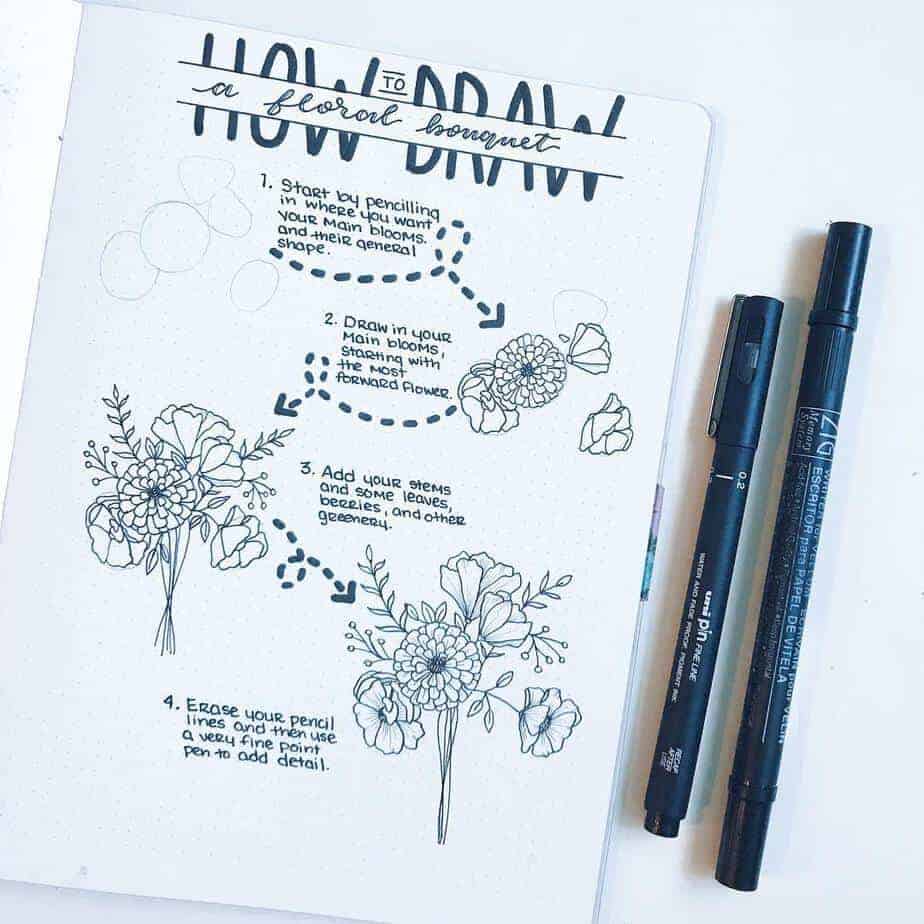 HOW TO DRAW
a floral bouquet
1. Start by pencilling
in where you want
your main blooms.
and their general
shape.
2. Draw in your
main blooms,
starting with
the most
forward flower.
3. Add your stems
and some leaves,
berries, and other
greenery.
4. Erase your pencil
lines and then use
a very fine point
pen to add detail.
0.2
uni pin FINE LINE
WATER AND FADE PROOF, PIGMENT INK
RECAP
AFTER
USE
ZIG
Memory
System
WRITER for VELLUM
ESCRITOR para PAPEL DE VITELA